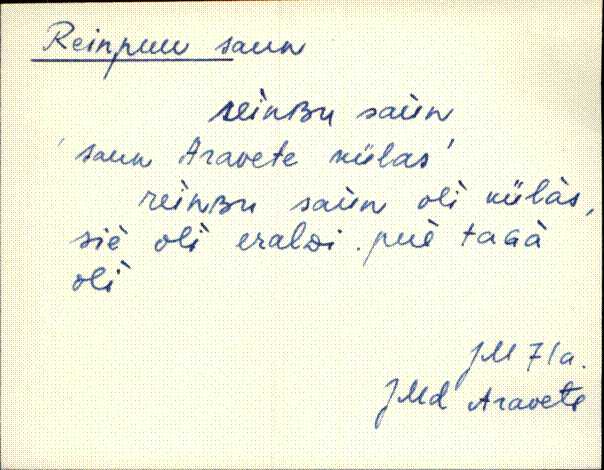 Reinpuu saun
reìnʙu saùn
'saun Aravete külas'
reìnʙu saùn oлì külàs,
siè oлì eralᴅi. puè taɢà
oлì
JM 71a.
JMd Aravete